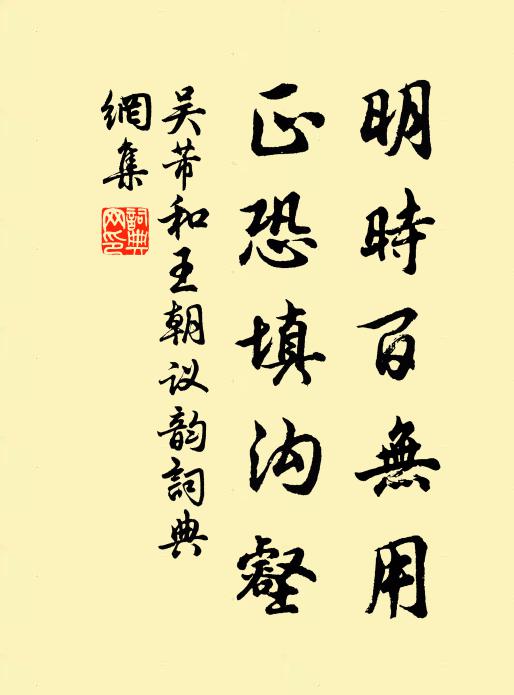 明時百無用
正恐填沟壑
吴芾和王朝议韵詞典
網集
詞典
网印